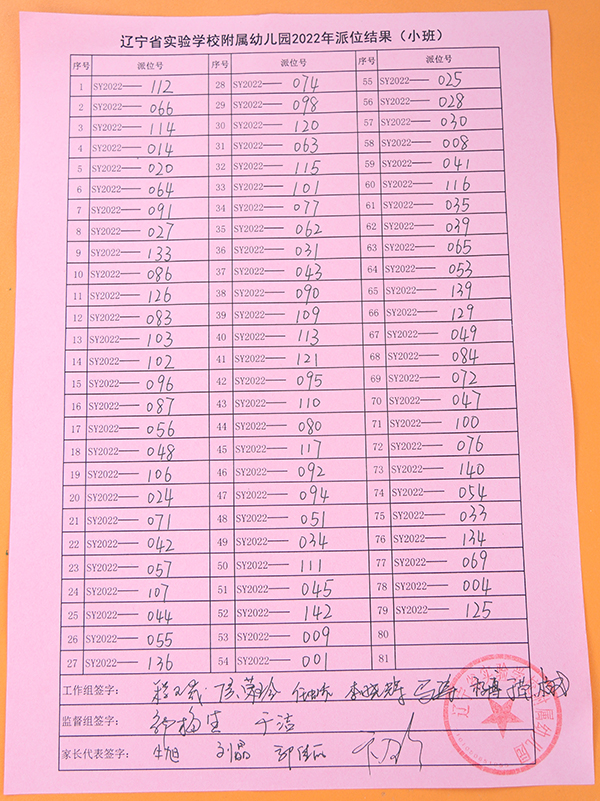 辽宁省实验学校附属幼儿园2022年派位结果（小班）
序号 派位号 序号 派位号 序号 派位号
1 SY2022—— 112 28 SY2022—— 074 55 SY2022—— 025
2 SY2022—— 066 29 SY2022—— 098 56 SY2022—— 028
3 SY2022—— 114 30 SY2022—— 120 57 SY2022—— 030
4 SY2022—— 014 31 SY2022—— 063 58 SY2022—— 008
5 SY2022—— 020 32 SY2022—— 115 59 SY2022—— 041
6 SY2022—— 064 33 SY2022—— 101 60 SY2022—— 116
7 SY2022—— 091 34 SY2022—— 077 61 SY2022—— 035
8 SY2022—— 027 35 SY2022—— 062 62 SY2022—— 039
9 SY2022—— 133 36 SY2022—— 031 63 SY2022—— 065
10 SY2022—— 086 37 SY2022—— 043 64 SY2022—— 053
11 SY2022—— 126 38 SY2022—— 090 65 SY2022—— 139
12 SY2022—— 083 39 SY2022—— 109 66 SY2022—— 129
13 SY2022—— 103 40 SY2022—— 113 67 SY2022—— 049
14 SY2022—— 102 41 SY2022—— 121 68 SY2022—— 084
15 SY2022—— 096 42 SY2022—— 095 69 SY2022—— 072
16 SY2022—— 087 43 SY2022—— 110 70 SY2022—— 047
17 SY2022—— 056 44 SY2022—— 080 71 SY2022—— 100
18 SY2022—— 048 45 SY2022—— 117 72 SY2022—— 076
19 SY2022—— 106 46 SY2022—— 092 73 SY2022—— 140
20 SY2022—— 024 47 SY2022—— 094 74 SY2022—— 054
21 SY2022—— 071 48 SY2022—— 051 75 SY2022—— 033
22 SY2022—— 042 49 SY2022—— 034 76 SY2022—— 134
23 SY2022—— 057 50 SY2022—— 111 77 SY2022—— 069
24 SY2022—— 107 51 SY2022—— 045 78 SY2022—— 004
25 SY2022—— 044 52 SY2022—— 142 79 SY2022—— 125
26 SY2022—— 055 53 SY2022—— 009 80
27 SY2022—— 136 54 SY2022—— 001 81
工作组签字：
监督组签字： 于洁
家长代表签字： 朱旭 刘晶